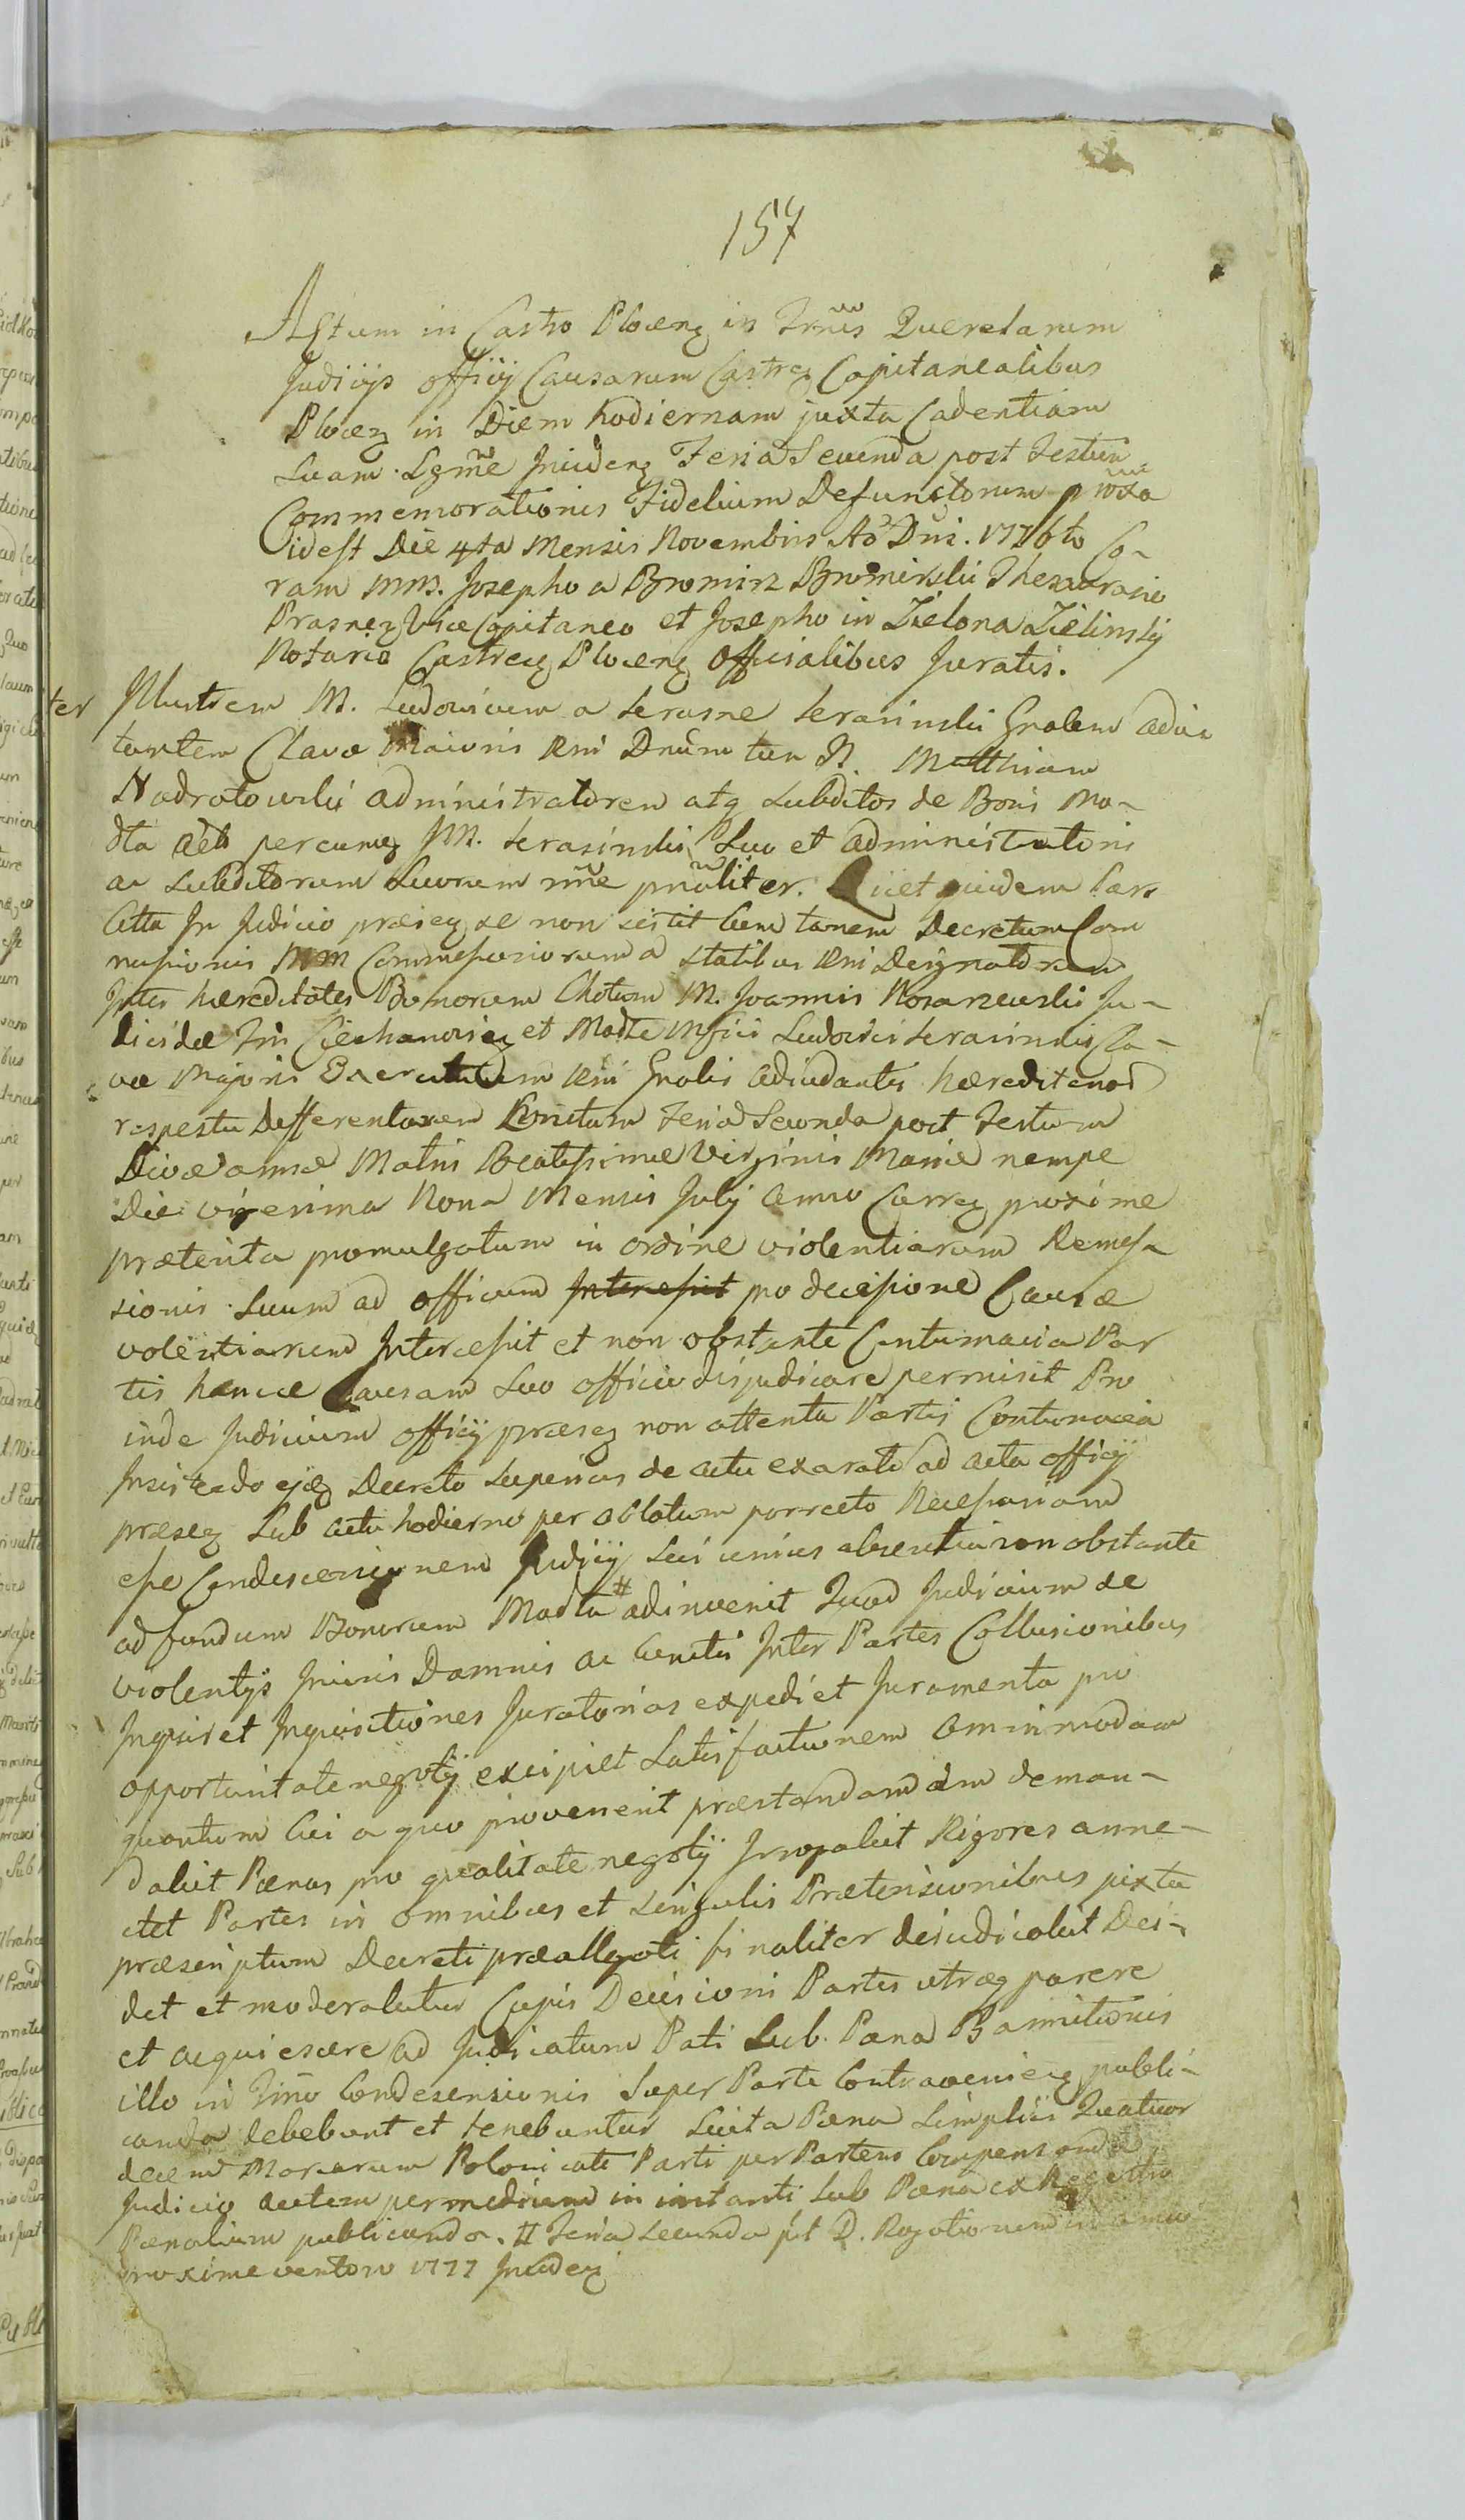 157
Actum in Castro Plocen in Trnis Querelarum
Judicijs officij Causarum Castren Capitanealibus
Plocen in Diem hodiernam juxta Cadentiam
Suam Lgme Inciden Feria Secunda post Festum
Commemorationis Fidelium Defunctorum proxa
idest Die 4ta Mensis Novembris Ao Dni. 1776to Co-
ram MM. Josepho a Bromirz Bromirski Thesaurario
Prasnen Vice Capitaneo et Josepho in Zielona Zielinsky
Notario Castren Plocen Officialibus Juratis.
ter Illustrem M. Ludovicum a Serasne Serasinski Gnalem adiu
tantem Clavae Maioris Rni Dnum tum N. Matthiam
Nadratowski administratorem atq Subditos de Bonis Mo-
dła actt per eumq JM. Serasinski Suo et administratoris
ac Subditorum Suorum nne pnaliter. Licet quidem Pars
Citta In Judicio praesen se non sistit Cum tamen Decretum Com
missionis MM Commissariorum a Statibus Rni Designatorum
Inter haereditates Bonorum Chotum M. Joannis Kosarzewski Ju-
dicidae Tri Ciechanovien et Modłe Mfici Ludovici Serasinski Cla-
vae Majoris Exercituum Rni Gnalis adiudantis haereditarios
respectu Defferentiarum Limitum Feria Secunda post Festum
Divae annae Matris Beatissimae Virginis Mariae nempe
Die vigesima Nona Mensis Julij anno Curren proxime
praeterita promulgatum in ordine violentiarum Remis
sionis Suum ad officium Intercessit pro decisione Causae
volentiarum Intercessit et non obstante Contumacia Par
tis hancce Causam Suo officio disjudicare permisit Pro
inde Judicium officij praesen non attenta Partis Contumacia
Insistendo ejdq Decreto Superius de actu exarati ad acta officij
praesen Sub actu hodierno per oblatum porrecto Necessariam
esse Condescensionem Judicij Sui unius absentia non obstante
ad fundum Bonorum Modła # adinvenit Quod Judicium de
violentijs Injuris Damnis ac Cunctis Inter Partes Collusionibus
Inquiret Inquisitiones Juratorias expediet Juramenta pro
opportunitate negotij excipiet Satisfactionem omnimodam
quantum Cui a quo provenerit praestandam dm deman-
dabit Paenas pro qualitate negotij Irrogabit Rigores anne-
ctet Partes in omnibus et Singulis Praetensionibus juxta
praescriptum Decreti praeallegati finaliter dijudicabit Deci-
det et moderabitur Cujus Decisioni Partes utraeq parere
et acquiescere ad Judicatum Pati Sub Paena Bannitionis
illo in Trmo Condescensionis Super Parte Contravenien publi-
canda debebunt et tenebuntur Luita Paena Simplici Quatuor
decem Marcarum Polonicali Parti per Partem Compensanda
Judicio autem per medium in instanti Sub Paena ex Regestro
Paenalium publicanda. # Feria Secunda pst D. Rogationum in anno
proxime venturo 1777 Inciden